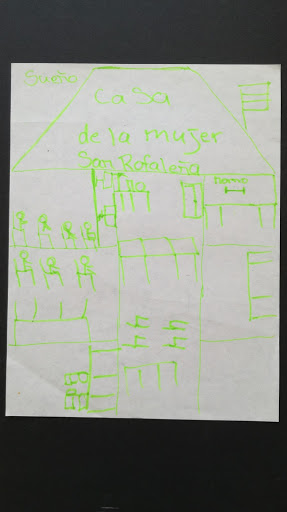 Sueño
Casa
de la mujer
San Rofaleña